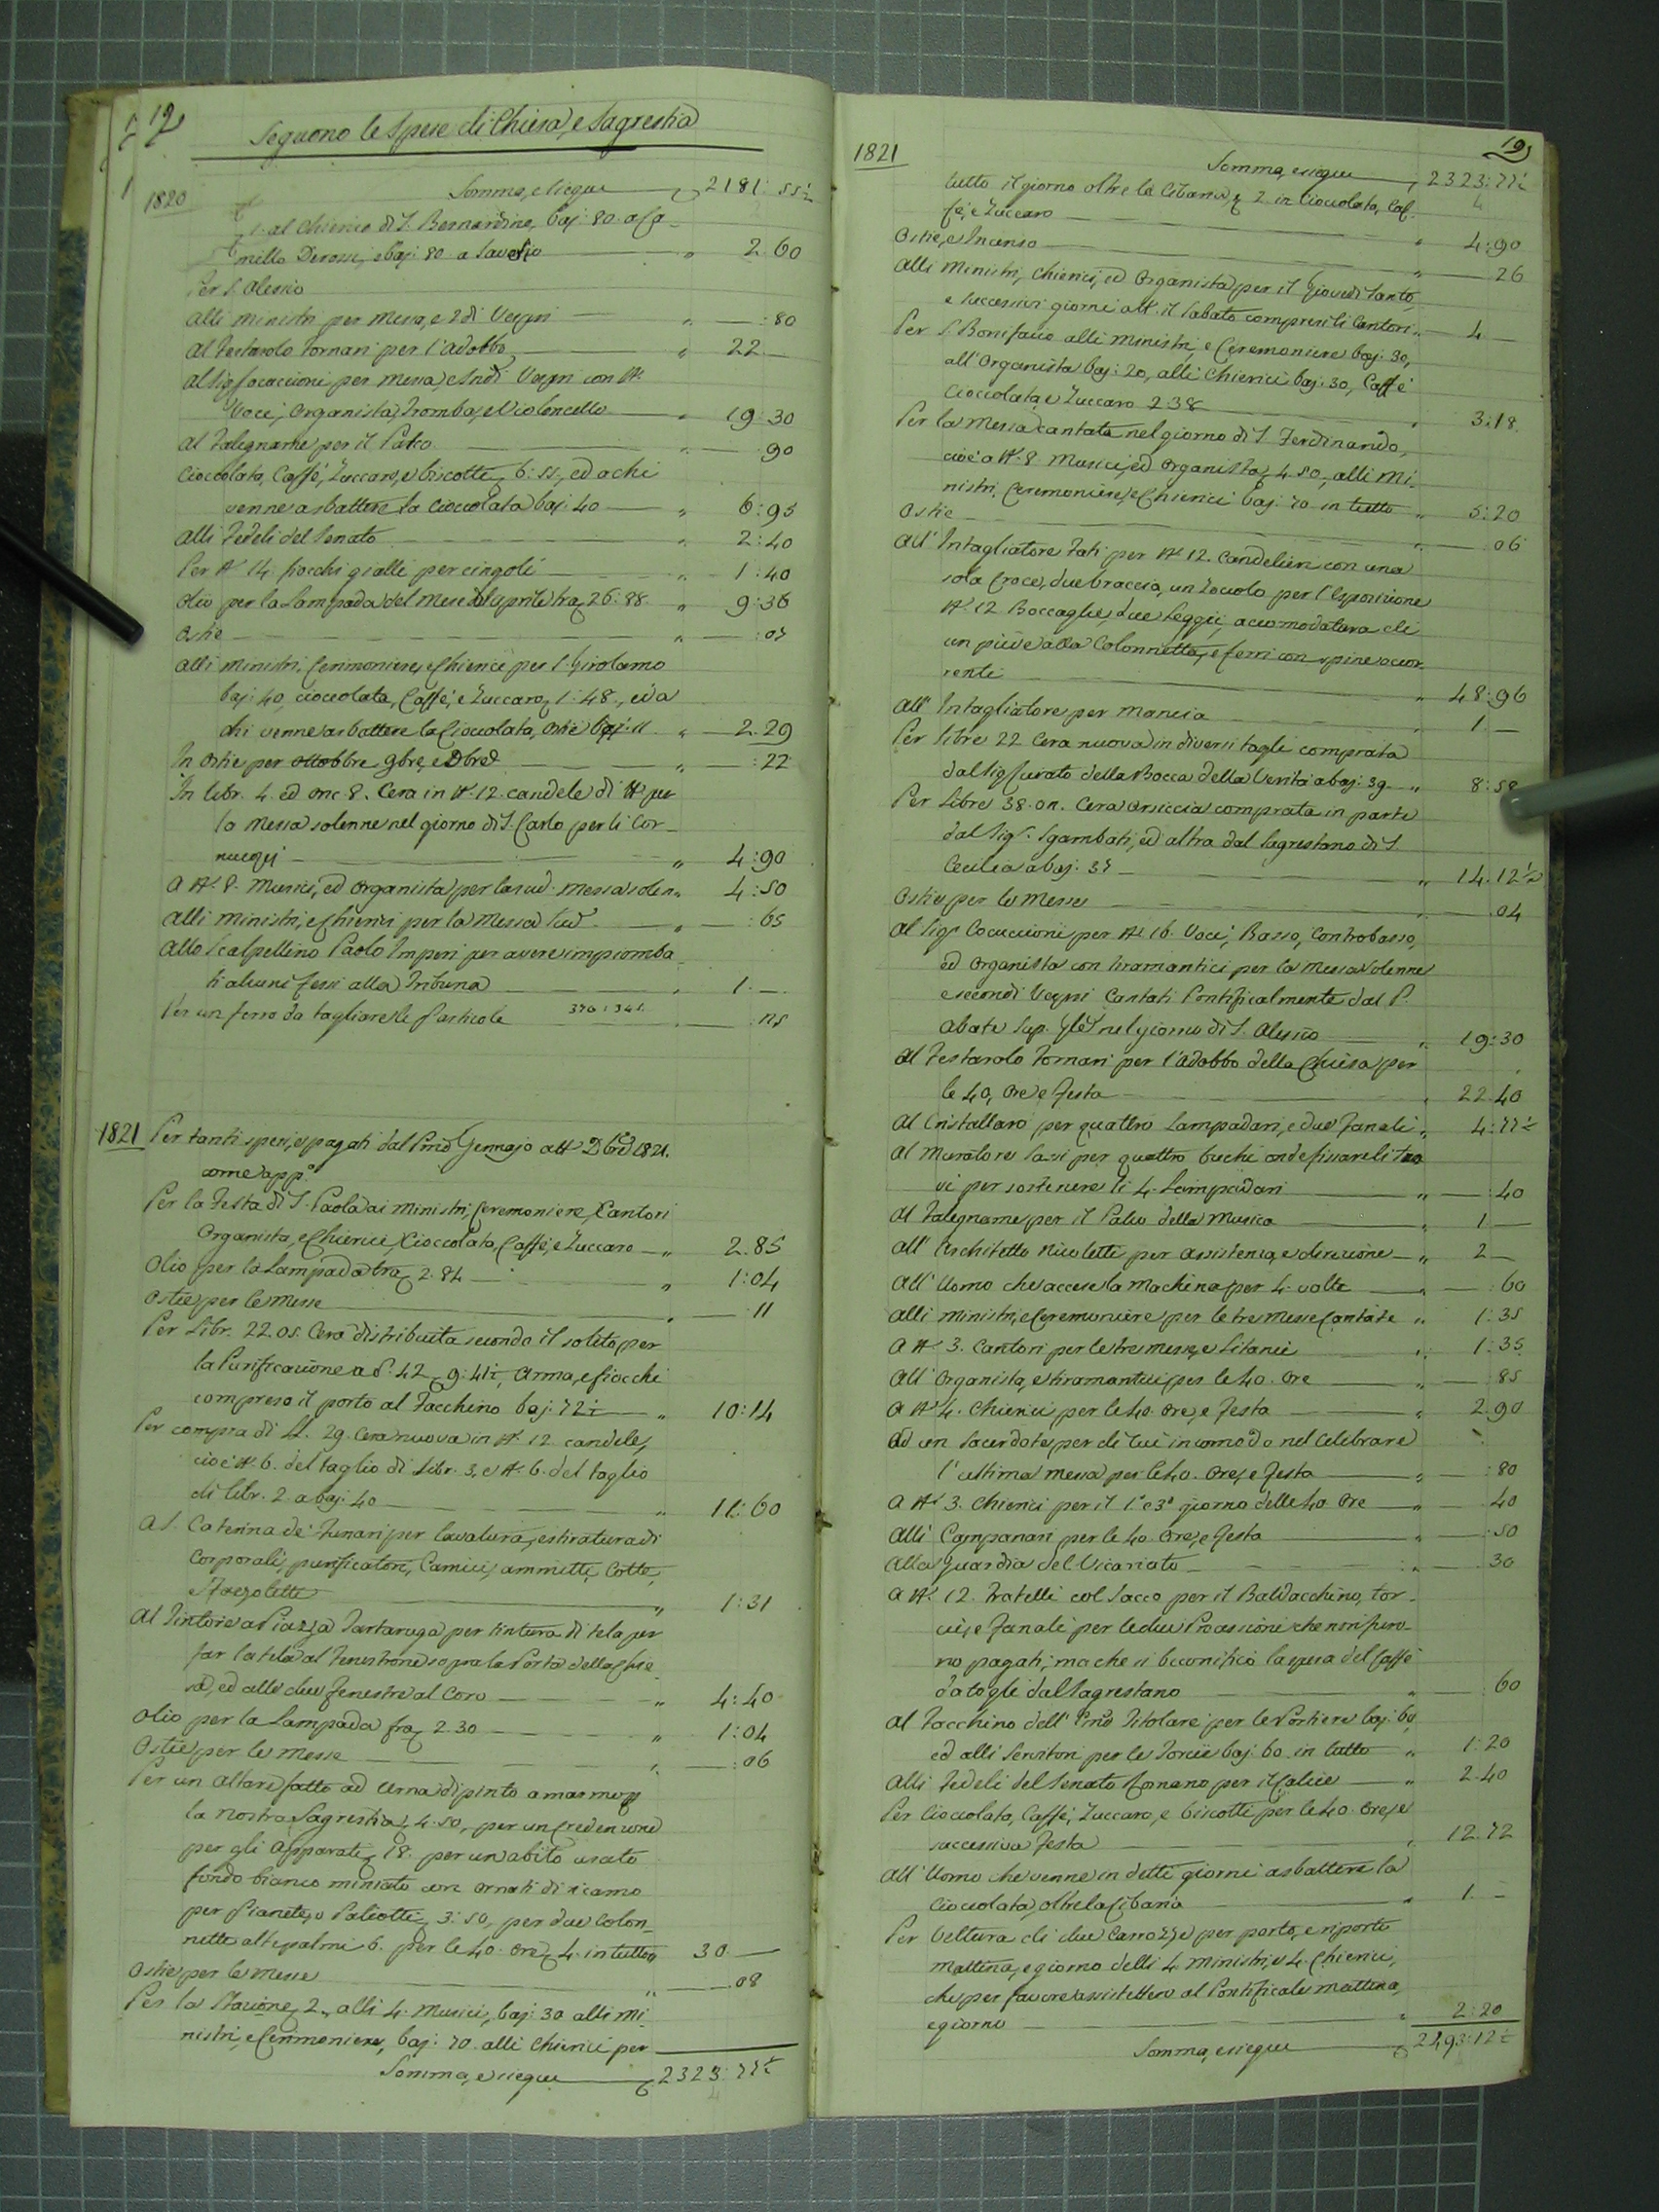 12
Seguono le Spese di Chiesa, e Sagrestia
1820
Somma, e siegue 2181:55½
al Chierico di S. Bernardino, baj: 80. a Ca-
millo Derossi, e baj: 80 a Saverio " 2.60
Per S. Alessio
Alli Ministri per Messa, e 2di Vespri " :80
Al Festarolo Fornari per l'Adobbo " 22.—
Al Sig. Cocuccioni per Messa, e Sndi Vespri con N.
Voci, Organista, Tromba, e Violoncello " 19:30
Al Falegname per il Palco " 90
Cioccolata, Caffè, Zuccaro, e biscotti 6:55, ed a chi
venne a sbattere la Cioccolata baj: 40 " 6:95
Alli Fedeli del Senato " 2:40
Per N. 14 fiocchi gialli per cingoli " 1:40
Olio per la Lampada del Mese d'Aprile tra 26:88 " 9:36
Ostie " :07
Alli Ministri, Cerimoniere, e Chierici per S. Girolamo
baj: 40, cioccolata, Caffè, e Zuccaro 1:48, ed a
chi venne a sbattere la Cioccolata, Ostie baj: 11 " 2.29
In Ostie per Ottobbre 9bre, e Dbre " :22
In libr. 4. ed onc. 8. Cera in N. 12. candele di N. per
la Messa solenne nel giorno di S. Carlo per li Cor-
nucopj " 4:90
A N. 8. Musici, ed Organista per la sud. Messa solen. " 4:50
Alli Ministri, e Chierici per la Messa Sud. " :65
Allo Scalpellino Paolo Imperi per avere impiomba-
ti alcuni fessi alla Tribuna " 1.—
Per un ferro da tagliare le Particole 370:345. :15
1821 Per tanti spesi, e pagati dal Pmo Gennajo a tt. Dbre 1821.
come app.o
Per la Festa di S. Paola ai Ministri, Ceremoniere, Cantori
Organista, e Chierici, Cioccolata, Caffè, e Zuccaro " 2.85
Olio per la Lampada tra 2.84 " 1:04
Ostie per le Messe " 11
Per Libr. 22.05. Cera distribuita secondo il solito, per
la Purificazione a b. 42 9:41½, Arma, e fiocchi
compreso il porto al Facchino baj: 72½ " 10:14
Per compra di Lb. 29. Cera nuova in N. 12. candele,
cioè N. 6. del taglio di Libr. 3, e N. 6. del taglio
di libr. 2 a baj: 40 " 11:60
A S. Caterina de' Funari per lavatura, e stiratura di
Corporali, purificatori, Camici, ammitti, Cotte,
e Fazzoletti " 1:31
Al Tintore a Piazza Tartaruga per tintura di tela per
far la tela al Fenestrone sopra la Porta della Chie-
sa, ed alle due fenestre al Coro " 4:40
Olio per la Lampada fra 2.30 " 1:04
Ostie per le Messe " :06
Per un Altare fatto ad Urna dipinto a marmo per
la nostra Sagrestia 4.50, per un Credenzone
per gli Apparati 18. per un abito usato
fondo bianco miniato con ornati di ricamo
per Pianete, e Paliotti 3:50, per due Colon-
nette alte palmi 6. per le 40. Ore 4. in tutto " 30.—
Ostie per le Messe " .08
Per la Stazione 2, alli 4. Musici, baj: 30 alli Mi-
nistri, e Cerimoniere, baj: 70 alli Chierici per
Somma, e siegue 2323:77½
1821
19
Somma, e siegue 2323:77½
tutto il giorno oltre la Cibaria, 2 in Cioccolata, Caf-
fè, e Zuccaro " 4:90
Ostie, e Incenso " 26
Alli Ministri, Chierici, ed Organista per il Giovedì Santo,
e successivi giorni a tt. il Sabato compresi li Cantori " 4.—
Per S. Bonifacio alli Ministri, e Ceremoniere baj: 30,
all'Organista baj: 20, alli Chierici baj: 30, Caffè
Cioccolata, e Zuccaro 2:38 " 3:18
Per la Messa cantata nel giorno di S. Ferdinando,
cioè a N. 8. Musici, ed Organista 4.50, alli Mi-
nistri, Ceremoniere, e Chierici baj: 70 in tutto " 5:20
Ostie " 06
All'Intagliatore Fati per N. 12. Candelieri con una
sola Croce, due braccia, un Zoccolo per l'Esposizione
N. 12 Boccaglie, due leggii, accomodatura di
un piede alla Colonnetta, e ferri con spine occor-
renti " 48:96
All'Intagliatore per mancia " 1.—
Per libre 22 Cera nuova in diversi tagli comprata
dal Sig. Curato della Bocca della Verità a baj: 39 " 8:58
Per Libre 38. on. Cera arsiccia comprata in parte
dal Sig.r Sgambati, ed altra dal Sagrestano di S.
Cecilia a baj: 37 " 14.12½
Ostie per le Messe " .04
Al Sig.r Cocuccioni per N. 16. Voci, Basso, Controbasso,
ed Organista con tiramantici per la Messa Solenne
e secondi Vespri Cantati Pontificalmente dal P.
Abate Sup. Gle nel giorno di S. Alessio " 19:30
Al Festarolo Fornari per l'Adobbo della Chiesa per
le 40, Ore e Festa " 22.40
Al Cristallaro per quattro Lampadari, e due Fanali " 4:77½
Al Muratore Sassi per quattro buchi onde fissare li tra-
vi per sostenere li 4. Lampadari " :40
Al Falegname per il Palco della Musica " 1.—
All'Architetto Nicoletti per assistenza, e direzione " 2—
All'Uomo che accese la Machina per 4. volte " :60
Alli Ministri, e Ceremoniere per le tre Messe Cantate " 1:35
A N. 3. Cantori per le tre messe, e Litanie " 1:35
All'Organista, e tiramantici per le 40. Ore " :85
A N. 4. Chierici per le 40. Ore, e Festa " 2.90
Ad un Sacerdote per di lui incomodo nel Celebrare
l'ultima Messa per le 40. Ore, e Festa " :80
A N. 3. Chierici per il 1.° e 3.° giorno delle 40. Ore " .40
Alli Campanari per le 40. Ore, e Festa " :50
Alla Guardia del Vicariato " 30
A N. 12. Fratelli col Sacco per il Baldacchino, tor-
cie, e Fanali per le due Processioni che non furo-
no pagati, ma che si bonificò la spesa del Caffè
datogli dal Sagrestano " 60
Al Facchino dell'Emo Titolare per le Portiere baj: 60,
ed alli Servitori per le Torcie baj: 60. in tutto " 1:20
Alli Fedeli del Senato Romano per il Calice " 2.40
Per Cioccolata, Caffè, Zuccaro, e biscotti per le 40. Ore, e
successiva Festa " 12.72
All'Uomo che venne in detti giorni a sbattere la
Cioccolata, oltre la Cibaria " 1.—
Per Vettura di due Carrozze per porto, e riporto
mattina, e giorno delli 4. Ministri, e 4. Chierici,
che per favore assistettero al Pontificale mattina,
e giorno " 2:20
Somma, e siegue 2493:12½